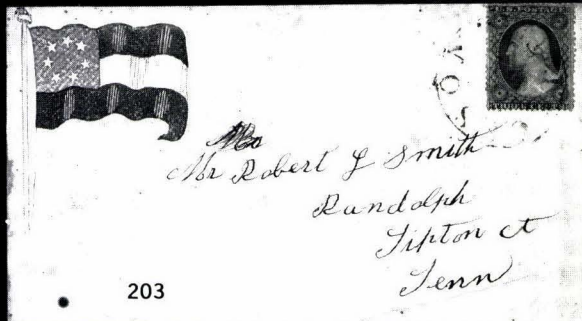 Mr Robert L Smith
Randolph
Tipton ct
Tenn
203